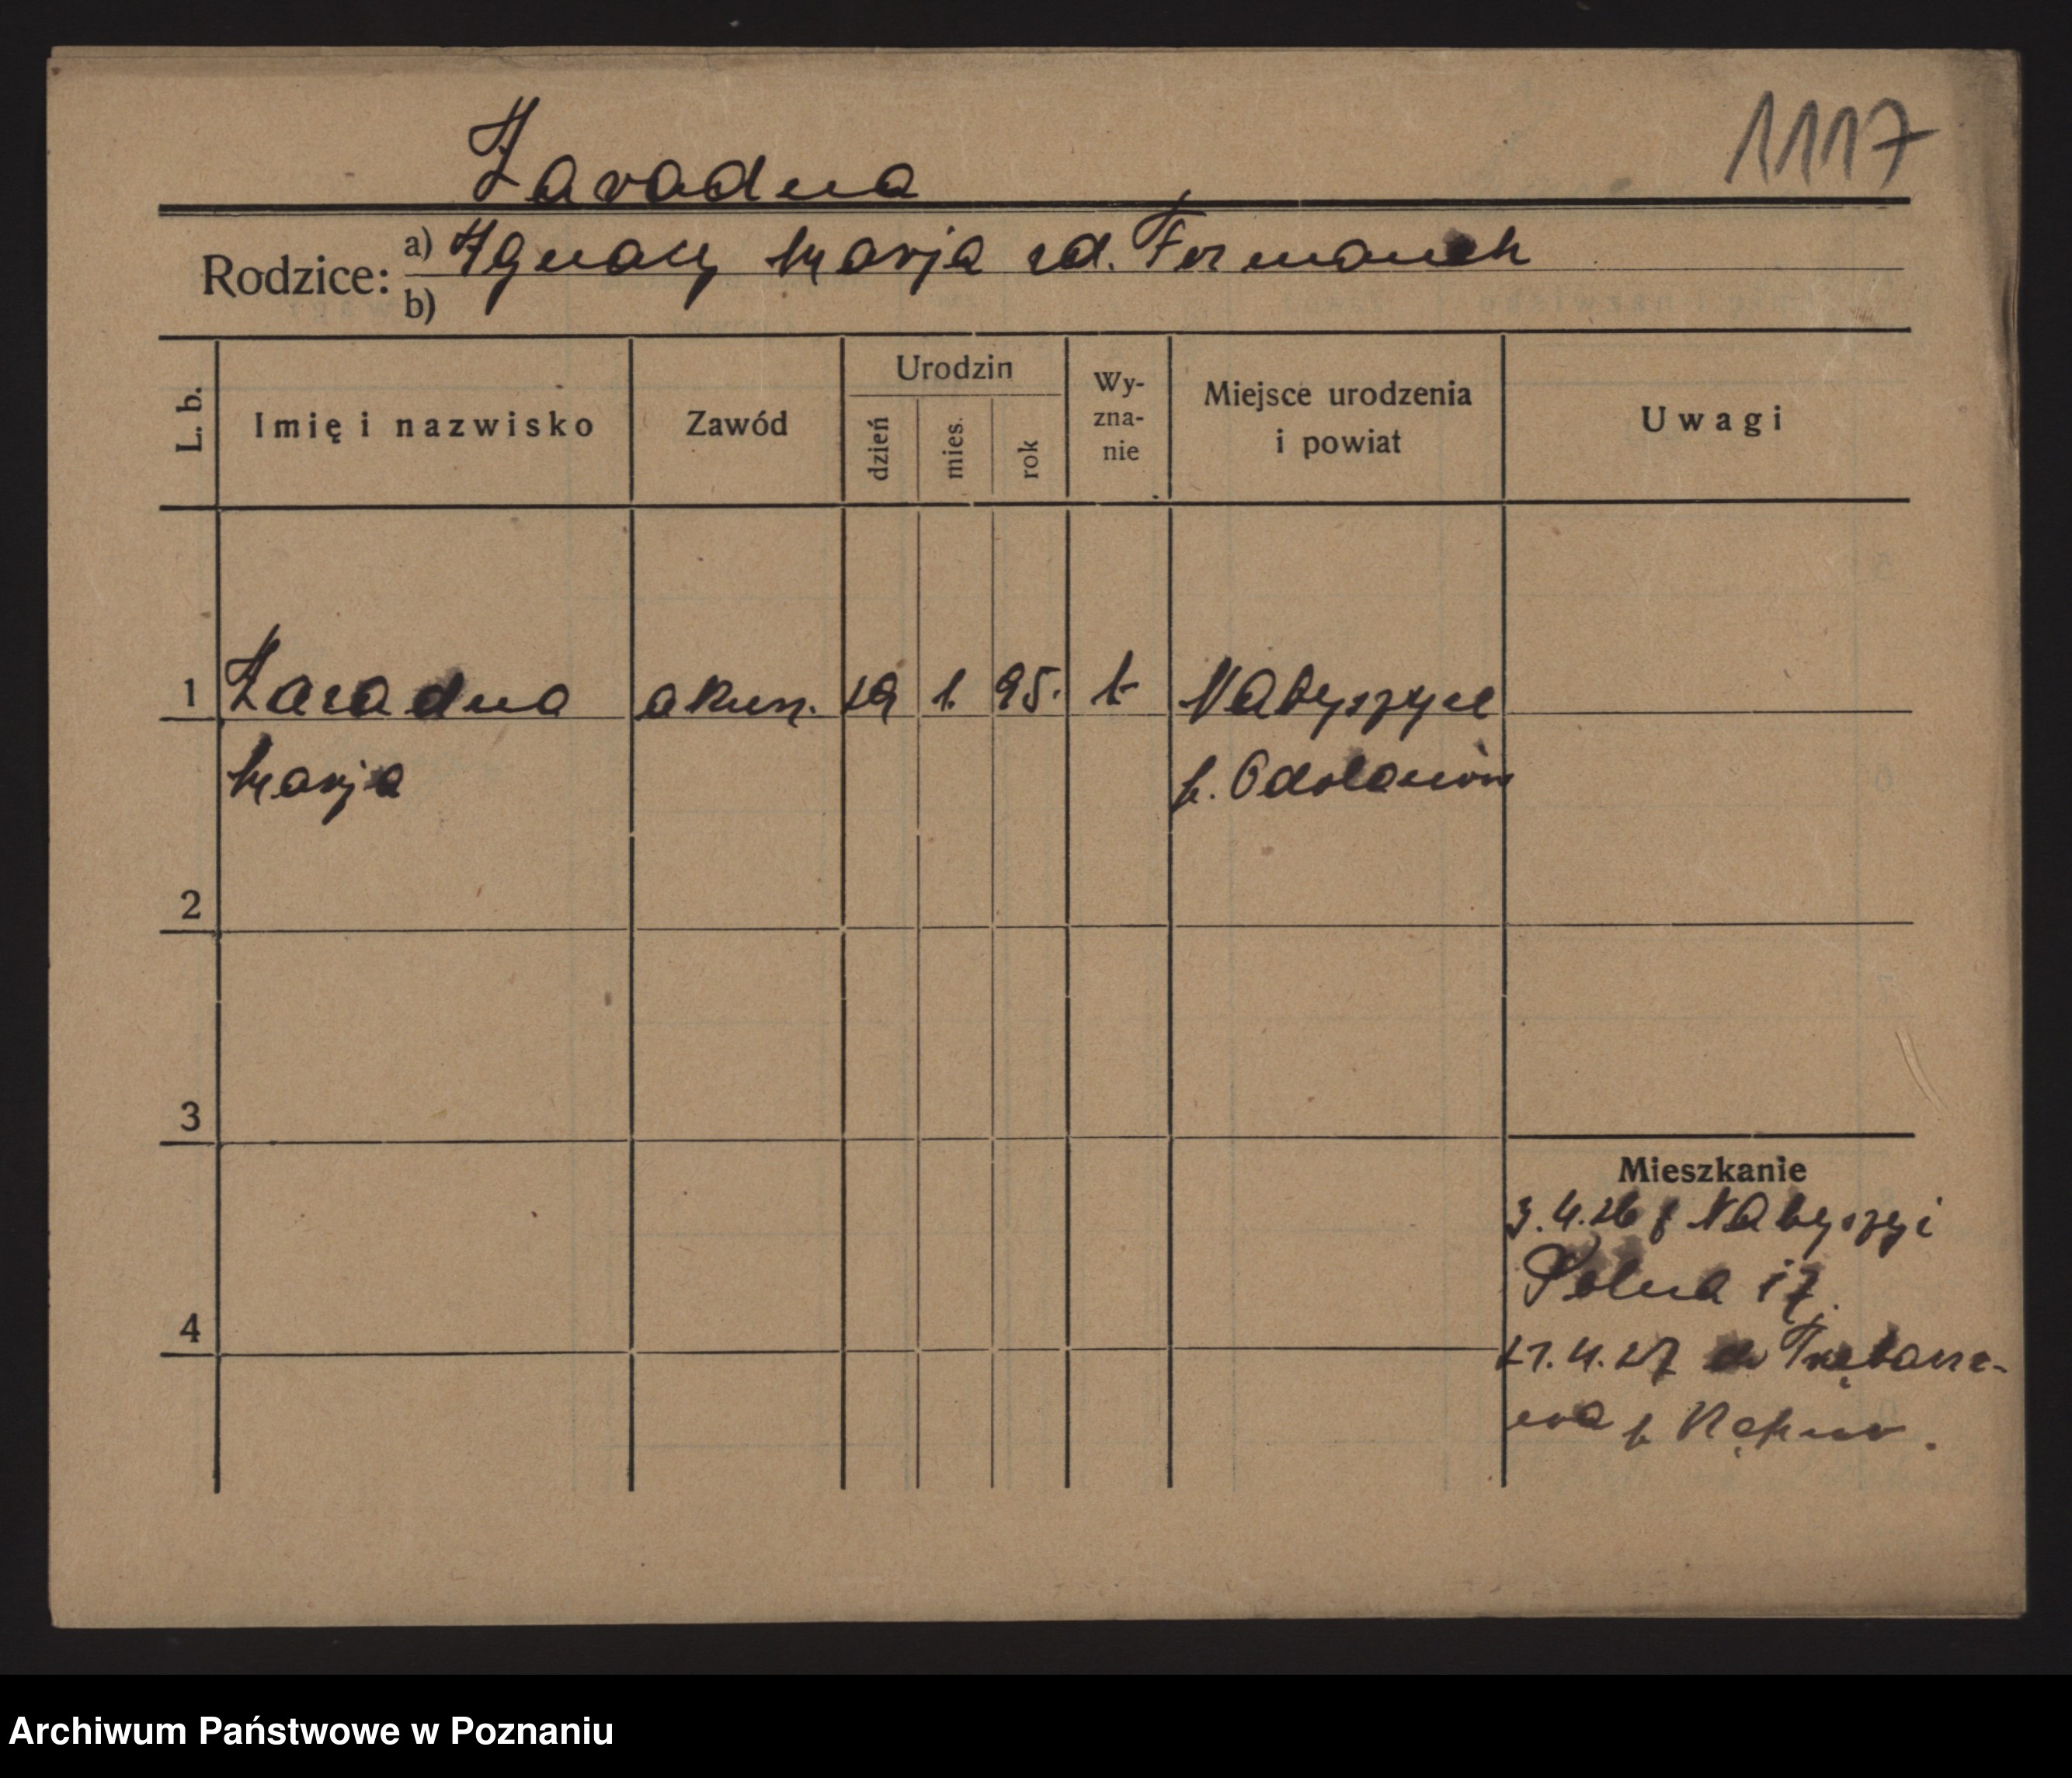 Zaradna
1117
Rodzice: a) Ignacy Marja rd. Furmanek
b)
L. b.
Imię i nazwisko
Zawód
Urodzin
dzień
mies.
rok
Wy-
zna-
nie
Miejsce urodzenia
i powiat
Uwagi
1 Zaradna akusz. 29 1. 95. k Nabyszyce
Marja p. Odolanów
2
3
4
Mieszkanie
3.4.26 z Nabyszyc
Polna 17.
21.4.27 do
p Kępno.
Archiwum Państwowe w Poznaniu